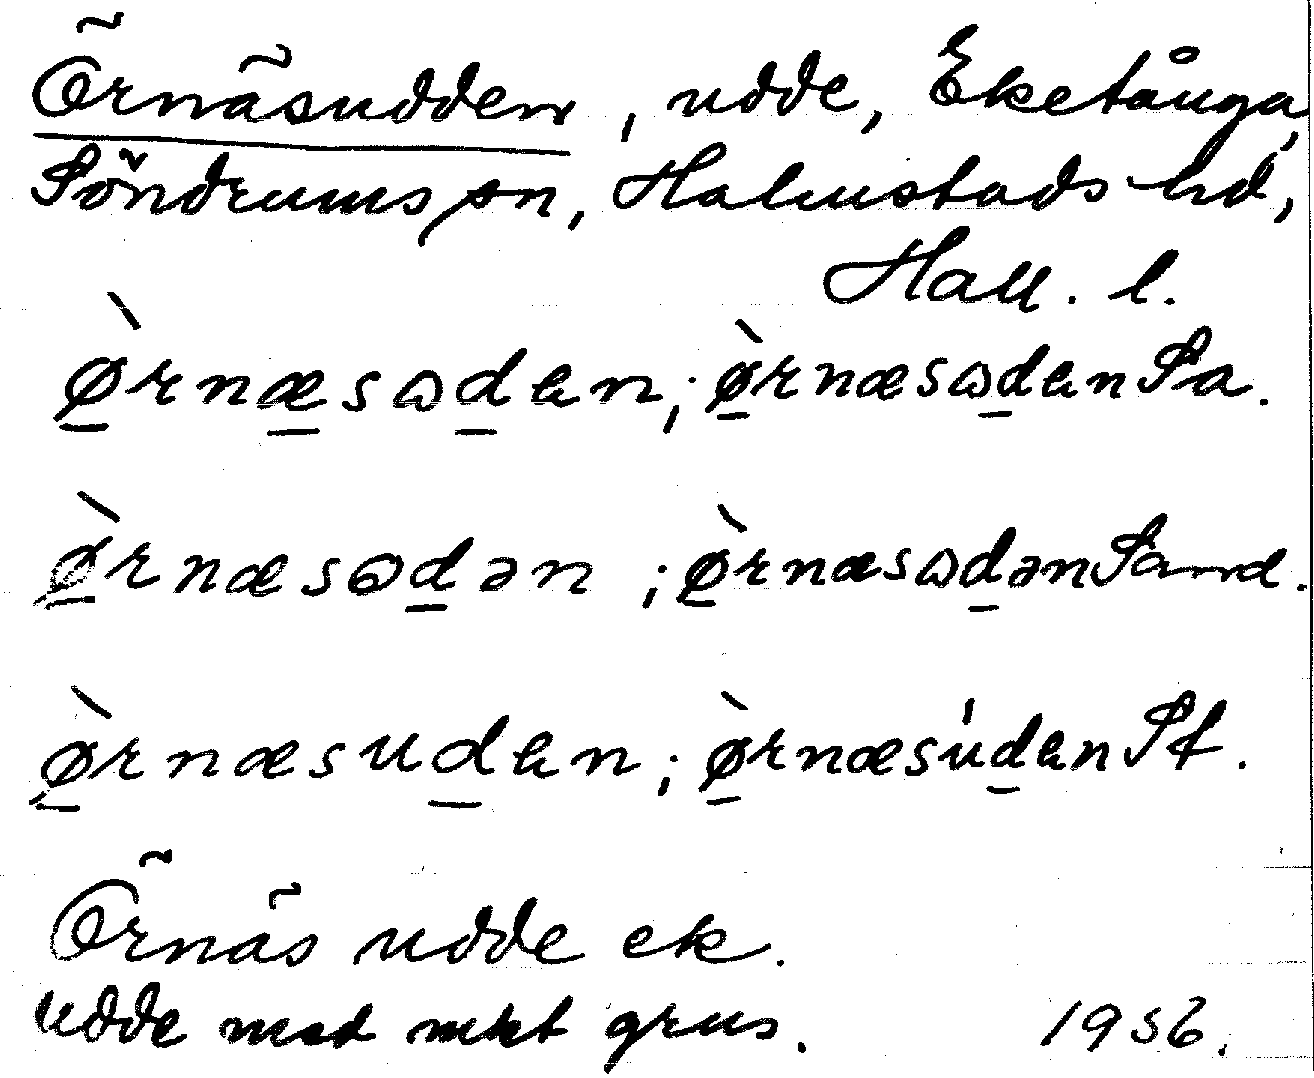 Örnäsudden, udde, Eketånga,
Söndrums sn, Halmstads hd,
Hall. l.
ø̀rnæsωden; ø̀rnæsωden Sa.
ø̀rnæsωdən; ø̀rnæsωdən Sand.
ø̀rnæsuden; ø̀rnæsúden Sf.
Örnäs udde ek.
Udde med mkt grus. 1956.